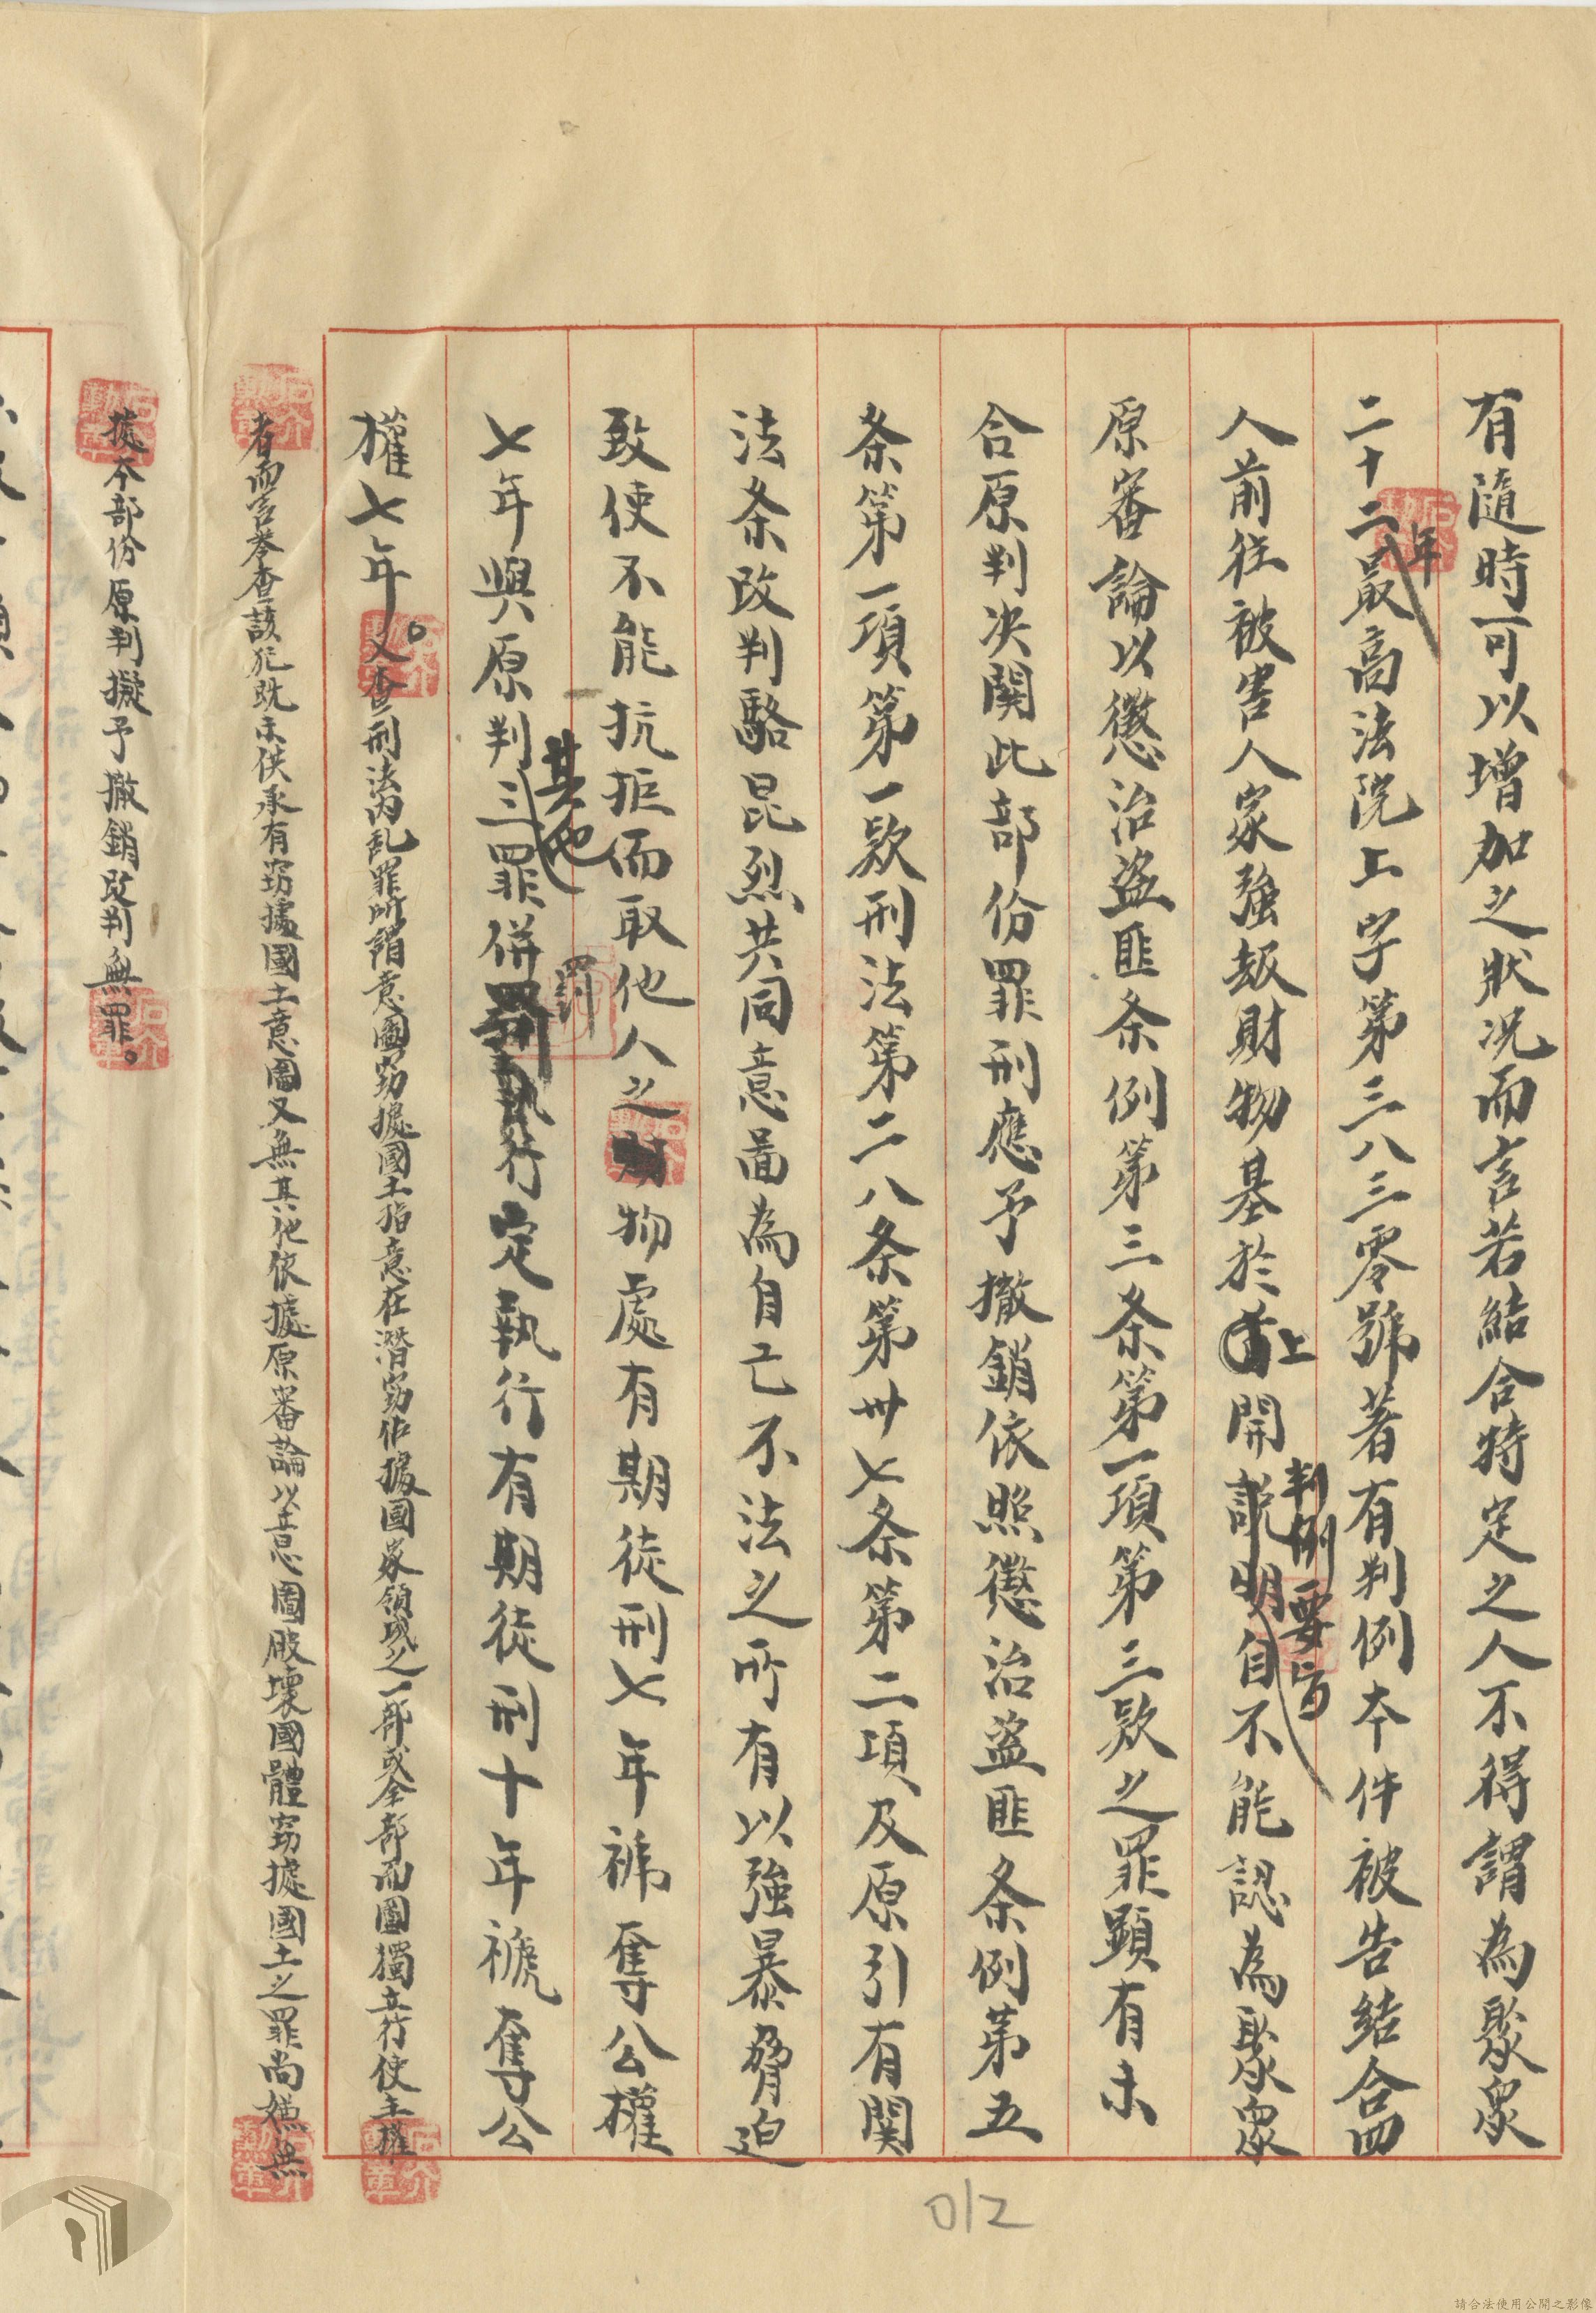 有隨時可以增加之狀況而言若結合特定之人不得謂為聚眾
二十二年最高法院上字第三八三零號著有判例本件被告結合四
人前往被害人家強劫財物基於上開判例要旨說明自不能認為聚眾
原審論以懲治盜匪条例第三条第一項第三欵之罪顕有未
合原判決関此部份罪刑應予撤銷依照懲治盜匪条例第五
条第一項第一欵刑法第二八条第卅七条第二項及原引有関
法条改判駱昆烈共同意啚為自己不法之所有以強暴脅迫
致使不能抗拒而取他人之物處有期徒刑七年褫奪公權
七年與原判其他三罪併罰定執行有期徒刑十年褫奪公
權七年。又查刑法內乱罪所謂意圖窃據國土指意在潛窃佔據國家領域之一部或全部而圖獨立行使主權
者而言茶查該犯既未供承有窃據國土意圖又無其他依據原審論以意圖破壞國體窃據國土之罪尚嫌無
據本部份原判擬予撤銷改判無罪。
012
請合法使用公開之影像